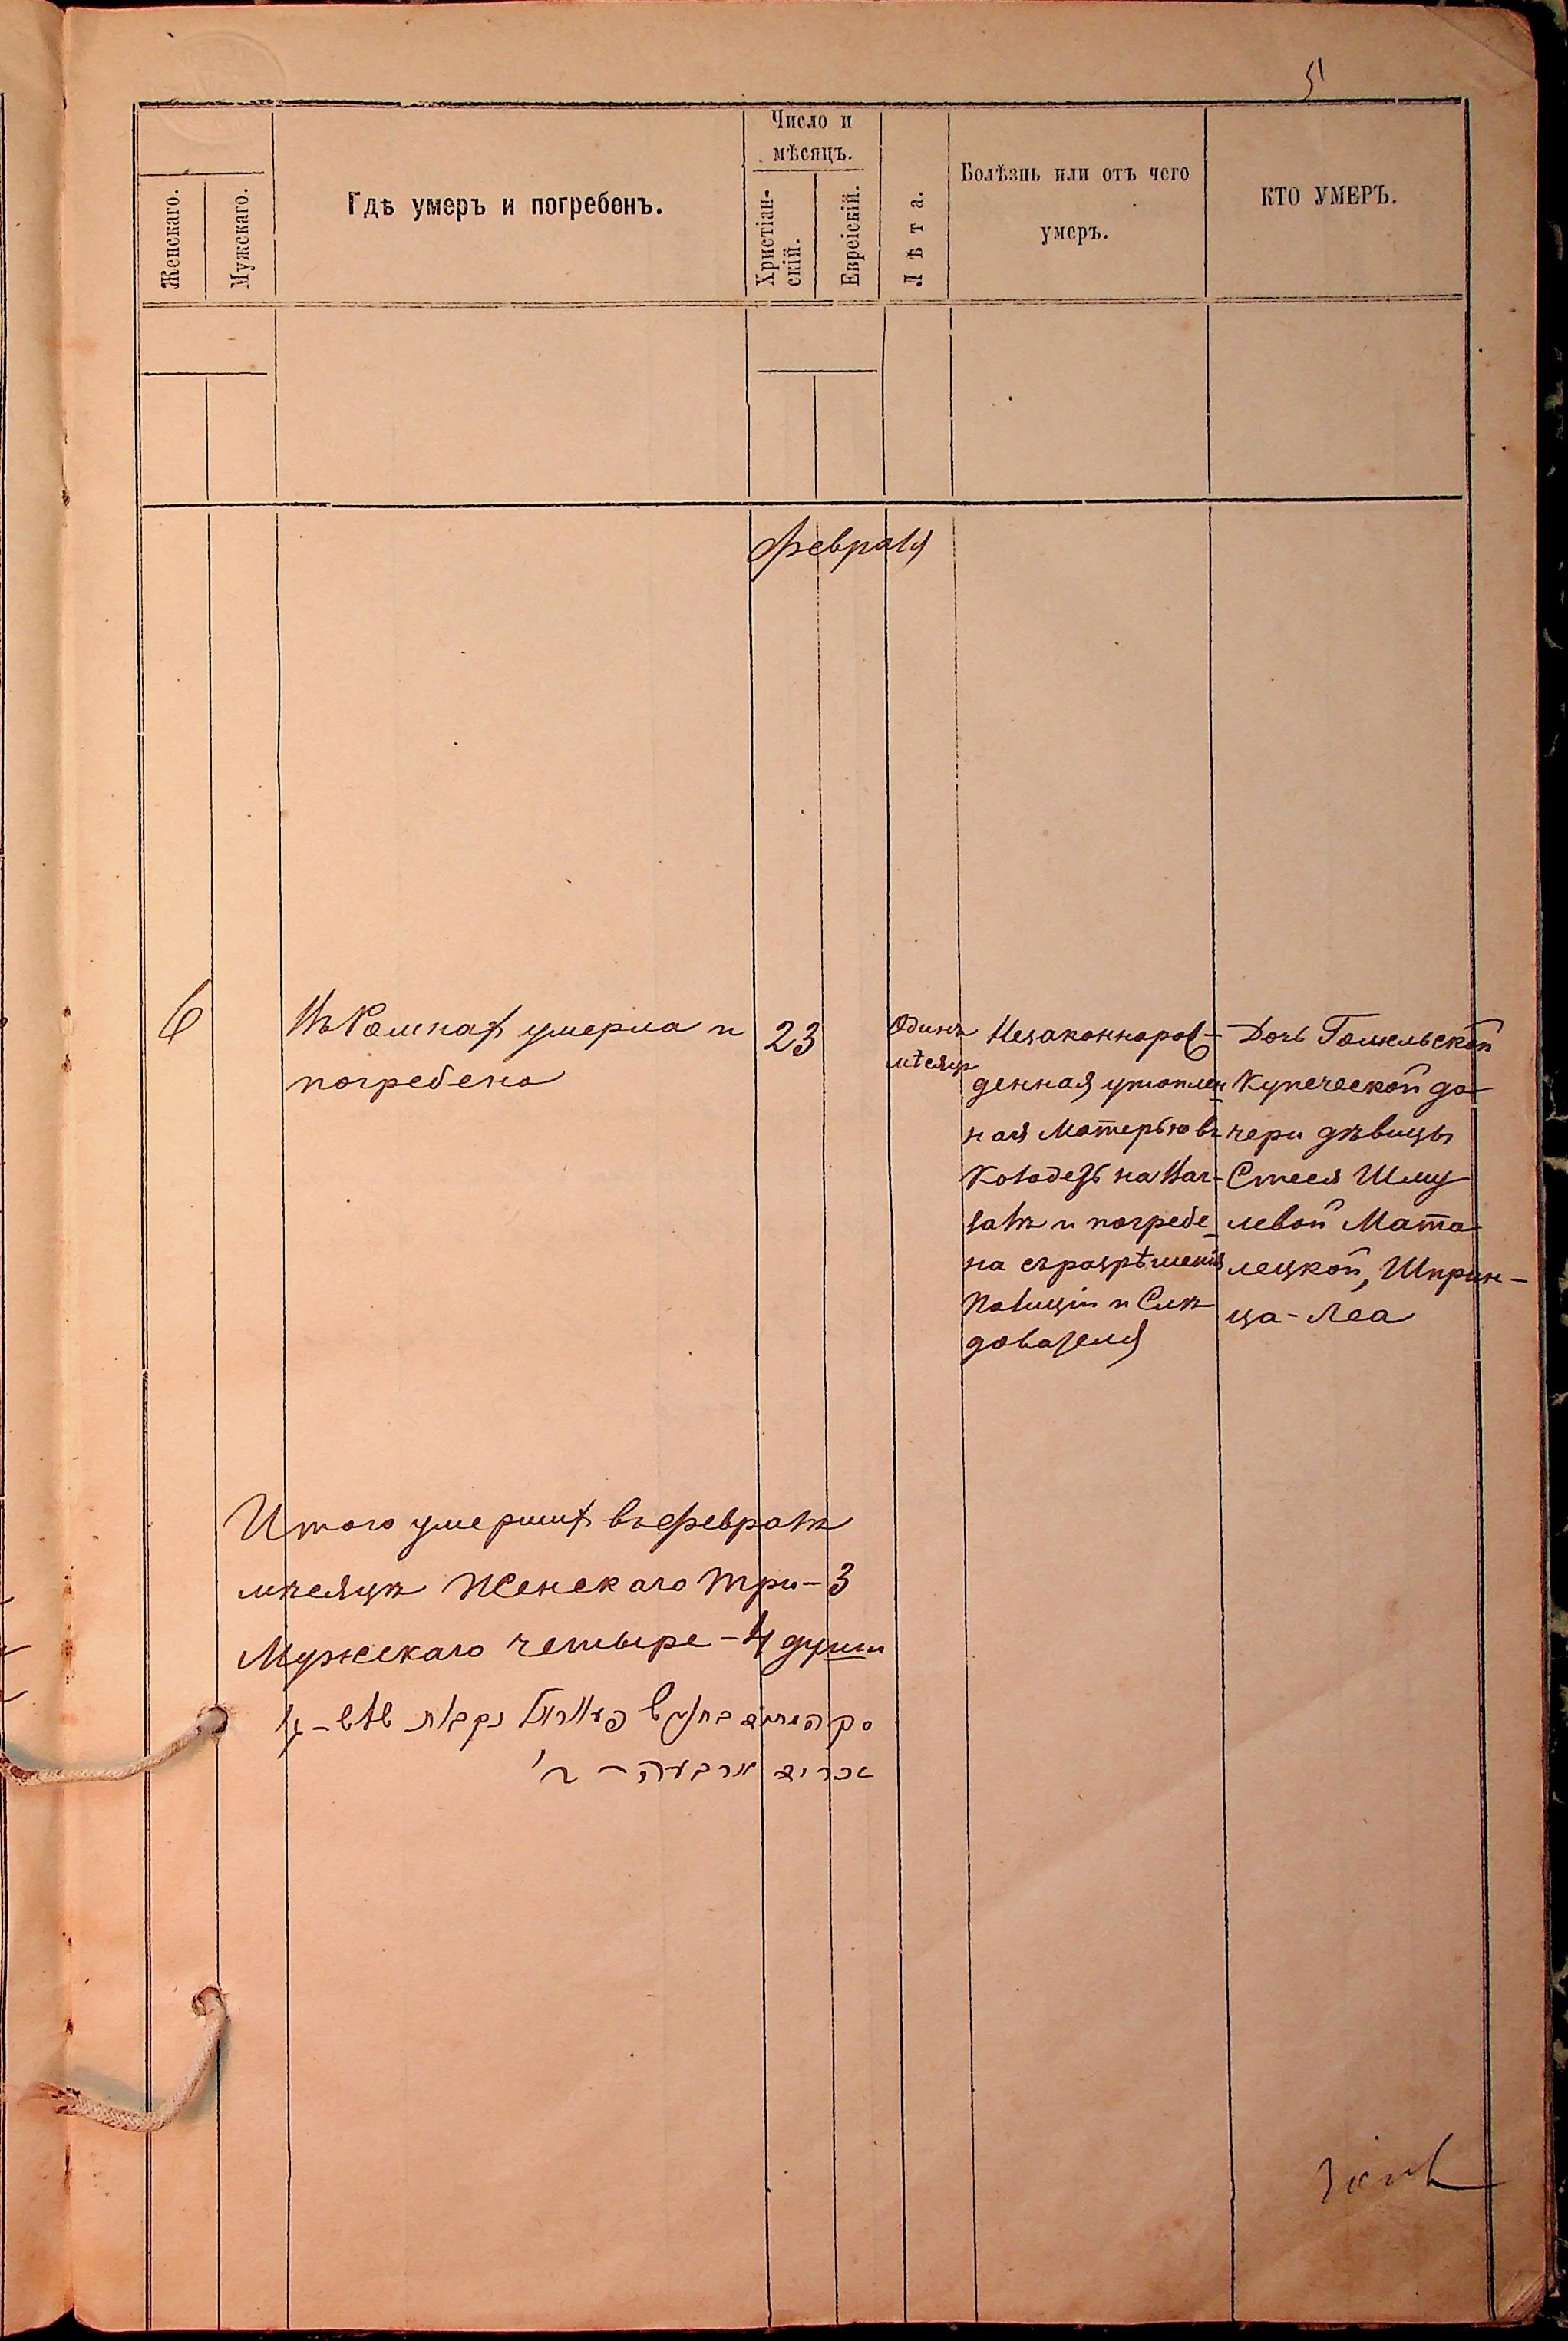 5
Женскаго.
Мужскаго.
Гдѣ умеръ и погребенъ.
Число и
мѣсяцъ.
Христіан-
скій.
Евреіскій.
Лѣта.
Болѣзнь или отъ чего
умеръ.
КТО УМЕРЪ.
февраля
6
Въ Ромнах умерла и
погребена
23
Одинъ
мѣсяц
Незаконнорож-
денная утоплен
ная Матерью въ
Колодезь на
и погребе-
на съ разрѣшенія
Полиціи и Слѣ
дователя
Дочь Гомельской
Купеческой до-
чери дѣвицы
Стеся Шму
левой Мата
лецкой, Шприн-
ца-Леа
Итого умерших въ февралѣ
мѣсяцѣ Женскаго три-3
Мужскаго четыре-4 души